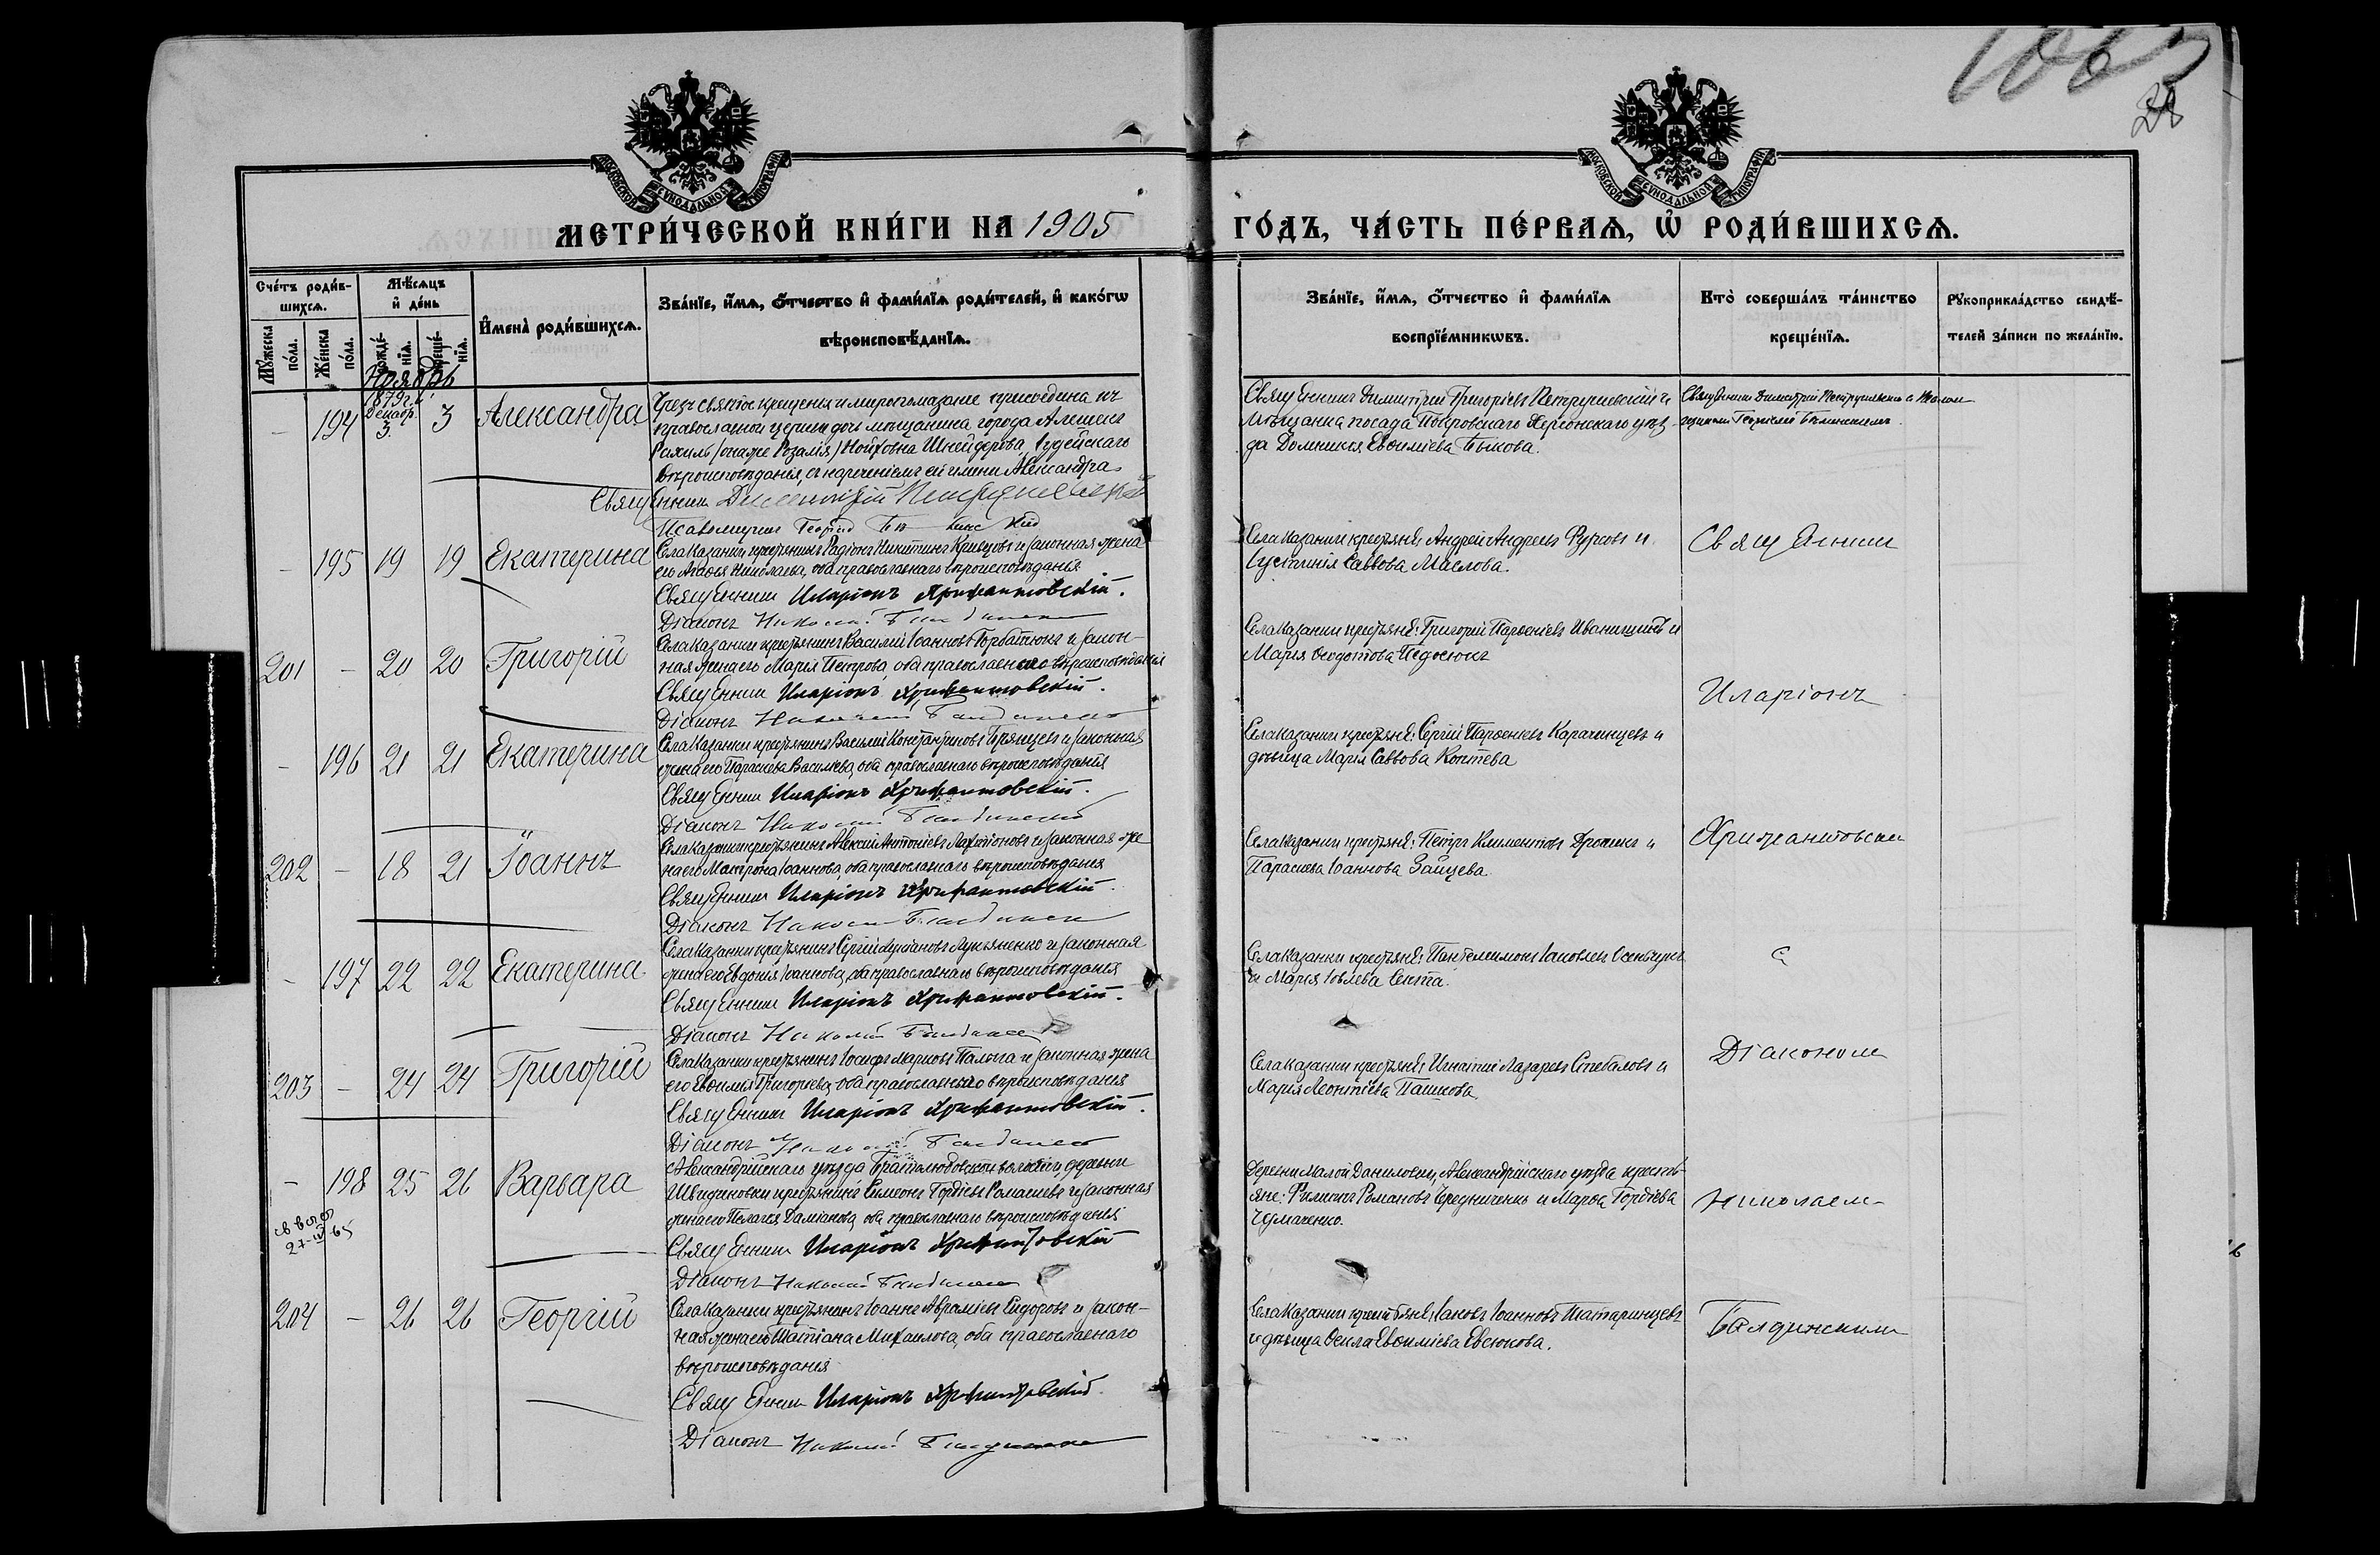 1063
28
МОСКОВСКОЙ СѴНОДАЛЬНОЙ ТИПОГРАФІИ
МОСКОВСКОЙ СѴНОДАЛЬНОЙ ТИПОГРАФІИ
МЕТРИ́ЧЕСКОЙ КНИ́ГИ НА 1905
ГО́ДЪ, ЧА́СТЬ ПЕ́РВАѦ, Ѡ҆ РОДИ́ВШИХСѦ.
Сче́тъ роди́в-
шихсѧ.
Мꙋжеска по́ла.
Же́нска по́ла.
Мѣ́сѧцъ
и҆ де́нь
рожде́-
нїѧ.
креще́-
нїѧ.
И҆мена̀ роди́вшихсѧ.
Зва́нїе, и҆́мѧ, ѻ҆́тчество и҆ фами́лїѧ роди́телей, и҆ како́гѡ
вѣроисповѣ́данїѧ.
Зва́нїе, и҆́мѧ, ѻ҆́тчество и҆ фами́лїѧ
воспрїе́мникѡвъ.
Кто̀ соверша́лъ та́инство
креще́нїѧ.
Рꙋкоприкла́дство свидѣ́-
телей за́писи по жела́нїю.
Ноябрь
1879 г.
Декабр.
3.
- 194 3 Александра
Чрезъ святое крещеніе и миропомазаніе присоединена къ
православной церкви дочь мѣщанина города Алешекъ
Рахиль /онаже Розалія/ Нойховна Шнейдерова, Іудейскаго
вѣроисповѣданія, съ нареченіемъ ей имени Александра
Священникъ Димитрій Петрушевскій
Псаломщикъ Георгій
Священникъ Димитрій Григоріевъ Петрушевскій и
Мѣщанка посада Покровскаго Херсонскаго уѣз-
да Домникія Евѳиміева Быкова.
Священникъ Димитрій Петрушевскій с Псалом-
щикомъ Георгіемъ
- 195 19 19 Екатерина
Села Казанки крестьянинъ Радіонъ Никитинъ Кривцовъ и законная жена
его Агаѳія Николаева, оба православнаго вѣроисповѣданія
Священникъ Иларіонъ Хрисанѳовскій.
Діаконъ Николай
Села Казанки крестьяне: Андрей Андреевъ Рурковъ и
Іустинія Саввова Маслова.
Священникъ
201 - 20 20 Григорій
Села Казанки крестьянинъ Василій Іоанновъ Горбатюкъ и закон-
ная жена его Марія Петрова, оба православнаго вѣроисповѣданія
Священникъ Иларіонъ Хрисанѳовскій.
Діаконъ Николай
Села Казанки крестьяне: Григорій Парѳеніевъ Иваницкій и
Марія Ѳеодотова Педосюкъ
Иларіонъ
- 196 21 21 Екатерина
Села Казанки крестьянинъ Василій Константиновъ Брянцевъ и законная
жена его Параскева Васильева, оба православнаго вѣроисповѣданія
Священникъ Иларіонъ Хрисанѳовскій.
Діаконъ Николай
Села Казанки крестьяне: Сергій Парѳеніевъ Карачинцевъ и
дѣвица Марія Саввова Коптева
202 - 18 21 Іоаннъ
Села Казанки крестьянинъ Алексій Антоніевъ и законная же-
на его Матрона Іоаннова, оба православнаго вѣроисповѣданія
Священникъ Иларіонъ Хрисанѳовскій.
Діаконъ Николай
Села Казанки крестьяне: Петръ Климентовъ и
Параскева Іоаннова Зайцева.
- 197 22 22 Екатерина
Села Казанки крестьянинъ Сергій Лукіановъ Лукьяненко и законная
жена его Евдокія Іоаннова, оба православнаго вѣроисповѣданія
Священникъ Иларіонъ Хрисанѳовскій.
Діаконъ Николай
Села Казанки крестьяне: Пантелеимонъ Іаковлевъ
и Марія Іовлева
с
203 - 24 24 Григорій
Села Казанки крестьянинъ Іосифъ Марковъ Палыга и законная жена
его Евѳимія Григорьева, оба православнаго вѣроисповѣданія
Священникъ Иларіонъ Хрисанѳовскій.
Діаконъ Николай
Села Казанки крестьяне: Игнатій Лазаревъ Стебаловъ и
Марія Леонтіева Пашкова
Діакономъ
- 198 25 26 Варвара
27-IV 65
Александрійскаго уѣзда Братолюбовской волости, деревни
крестьянинъ Симеонъ Гордіевъ и законная
жена его Пелагія Даміанова, оба православнаго вѣроисповѣданія
Священникъ Иларіонъ Хрисанѳовскій
Діаконъ Николай
Деревни Малой Даниловки, Александрійскаго уѣзда крестья-
не: Филимонъ Романовъ Чередниченко и Марѳа Гордіева
Чумаченко.
Николаемъ
204 - 26 26 Георгій
Села Казанки крестьянинъ Іоаннъ Авраміевъ Сидоровъ и закон-
ная жена его Татіана Михаилова, оба православнаго
вѣроисповѣданія
Священникъ Иларіонъ Хрисанѳовскій
Діаконъ Николай
Села Казанки крестьяне: Іаковъ Іоанновъ Татаринцевъ
и дѣвица Ѳекла Евѳиміева Евсюкова.